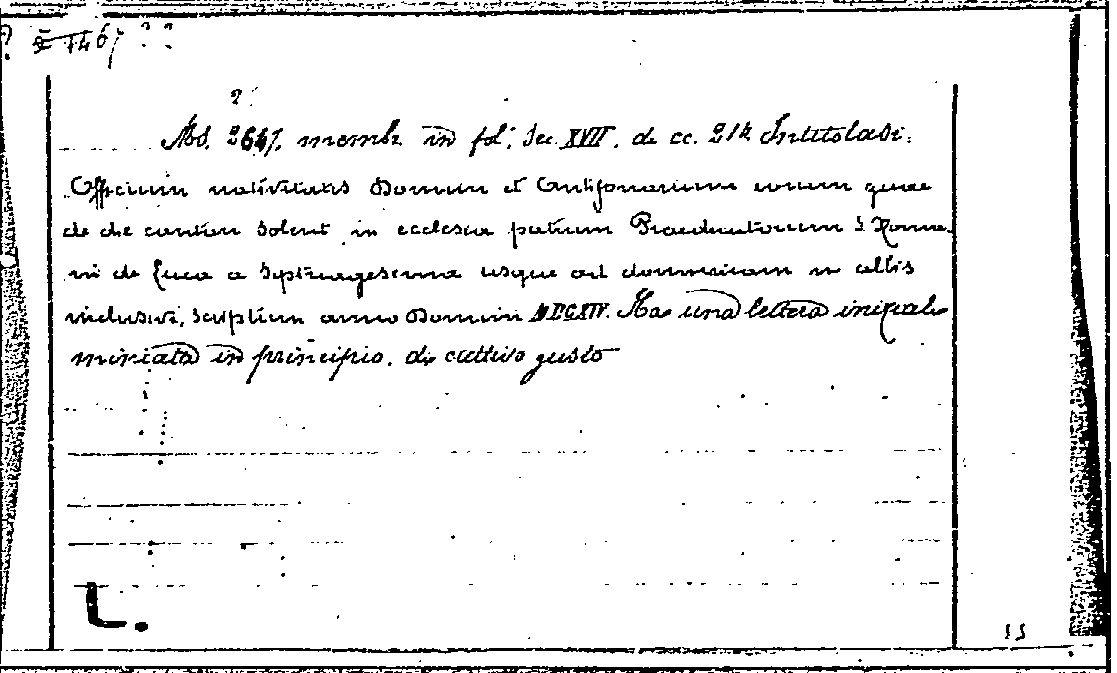 ? E 1467 ? ?
?
Ms. 2647. memb. in fol. Sec. XVII. di cc. 212 Intitolasi:
Officium nativitatis Domini et Antifonarium eorum quae
de die cantari solent in ecclesia patrum Praedicatorum S. Roma-
ni de Luca a Septuagesima usque ad dominicam in albis
inclusive, scriptum anno Domini MDCXIV. Ha una lettera iniziale
miniata in principio. di cattivo gusto
L.